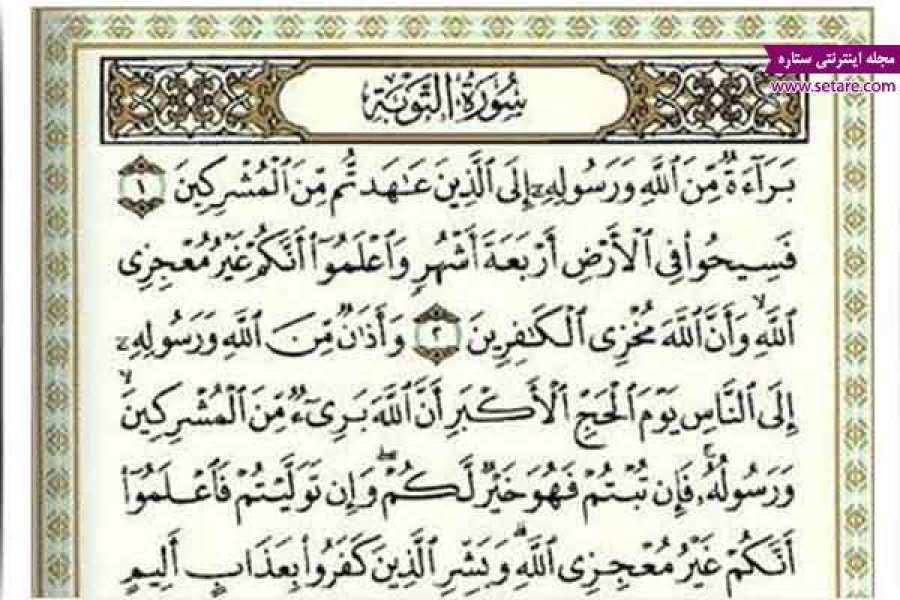 مجله اینترنتی ستاره
www.setare.com
سُورَةُ التَّوْبَةِ
بَرَآءَةٌ مِّنَ ٱللَّهِ وَرَسُولِهِۦٓ إِلَى ٱلَّذِينَ عَٰهَدتُّم مِّنَ ٱلْمُشْرِكِينَ ١
فَسِيحُوا۟ فِى ٱلْأَرْضِ أَرْبَعَةَ أَشْهُرٍ وَٱعْلَمُوٓا۟ أَنَّكُمْ غَيْرُ مُعْجِزِى
ٱللَّهِ ۙ وَأَنَّ ٱللَّهَ مُخْزِى ٱلْكَٰفِرِينَ ٢ وَأَذَٰنٌ مِّنَ ٱللَّهِ وَرَسُولِهِۦٓ
إِلَى ٱلنَّاسِ يَوْمَ ٱلْحَجِّ ٱلْأَكْبَرِ أَنَّ ٱللَّهَ بَرِىٓءٌ مِّنَ ٱلْمُشْرِكِينَ ۙ
وَرَسُولُهُۥ ۚ فَإِن تُبْتُمْ فَهُوَ خَيْرٌ لَّكُمْ ۖ وَإِن تَوَلَّيْتُمْ فَٱعْلَمُوٓا۟
أَنَّكُمْ غَيْرُ مُعْجِزِى ٱللَّهِ ۗ وَبَشِّرِ ٱلَّذِينَ كَفَرُوا۟ بِعَذَابٍ أَلِيمٍ